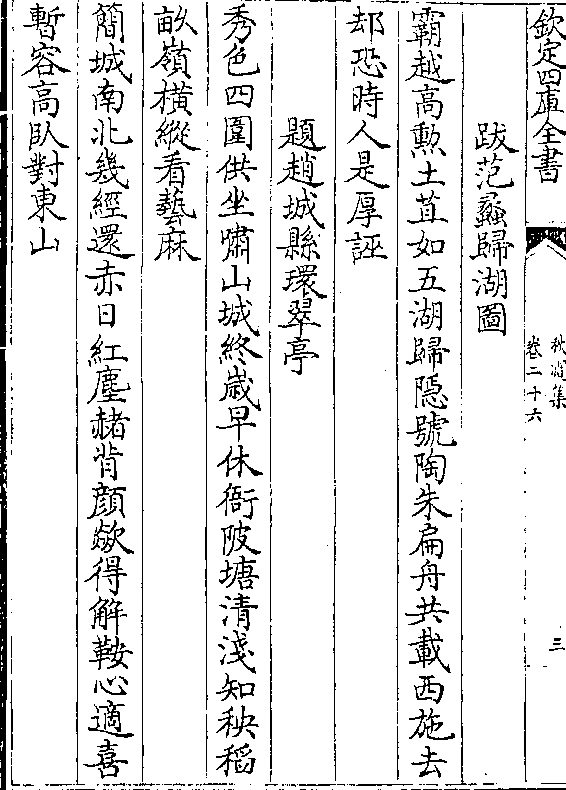 欽定四庫全書
秋澗集
卷二十六
三
跋范蠡歸湖圖
霸越高勲土苴如五湖歸隠號陶朱扁舟共載西施去
却恐時人是厚誣
題趙城縣環翠亭
秀色四圍供坐嘯山城終嵗早休衙陂塘清淺知秧稻
畝嶺橫縱看藝麻
簡城南北幾經還赤日紅塵赭背顔歘得解鞍心適喜
暫容高臥對東山